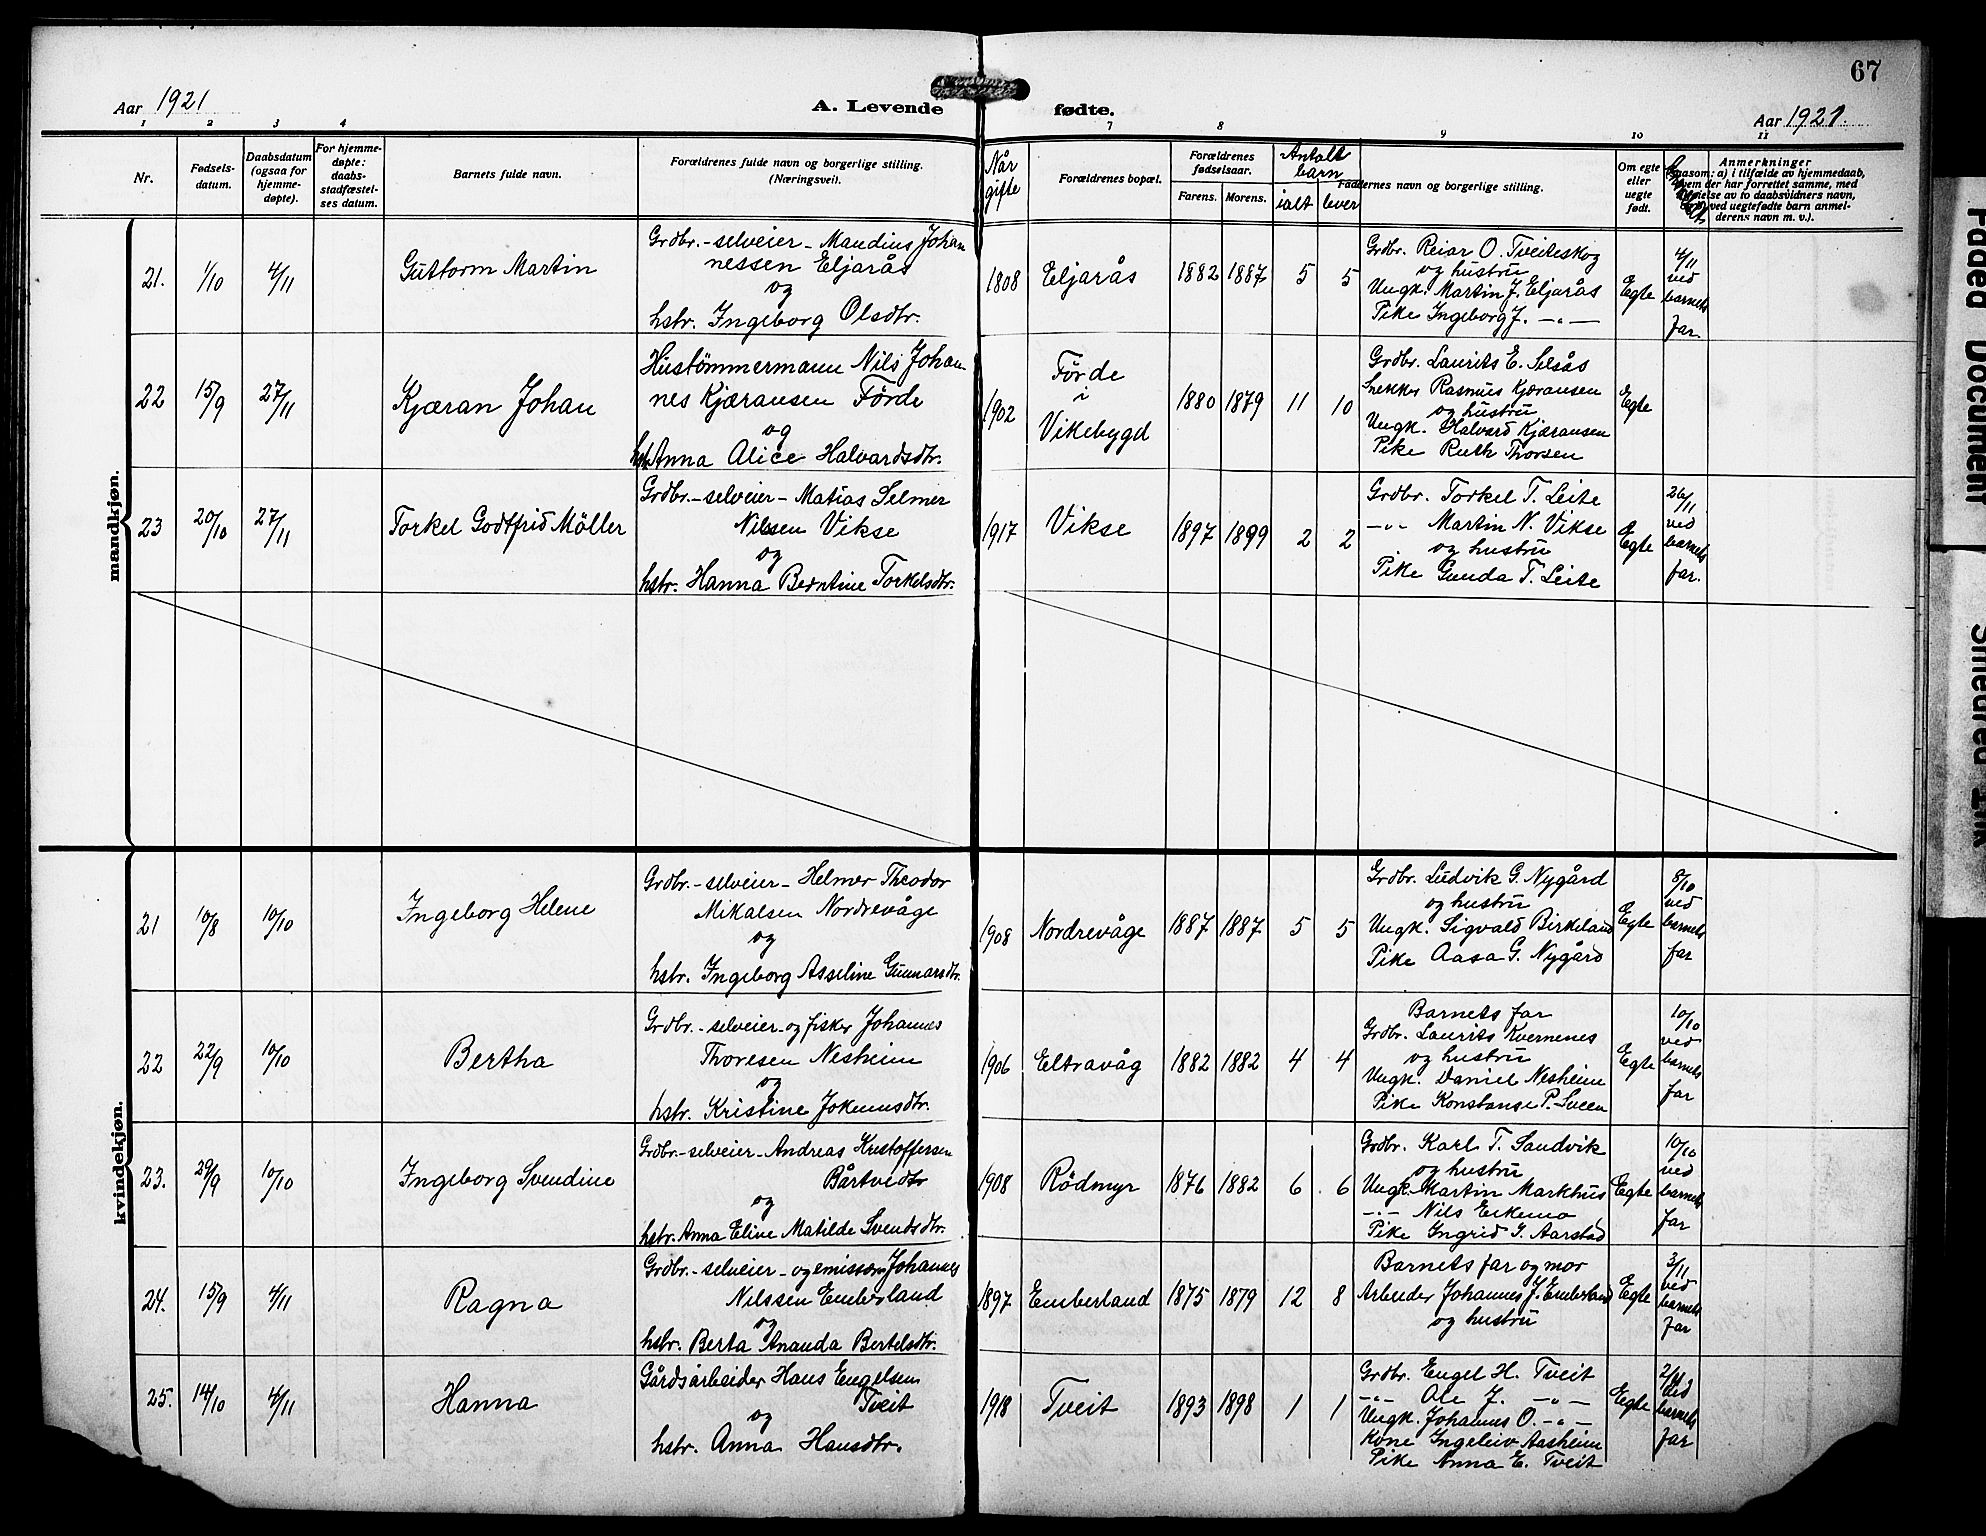 67
Aar 1921
A. Levende fødte.
Aar 1921.
1 2 3 4 7 8 9 10 11
Nr.
Fødsels-
datum.
Daabsdatum
(ogsaa for
hjemme-
døpte).
For hjemme-
døpte:
daabs-
stadfæstel-
ses datum.
Barnets fulde navn.
Forældrenes fulde navn og borgerlige stilling.
(Næringsvei).
Når
gifte
Forældrenes bopæl.
Forældrenes
fødselsaar.
Farens. Morens.
Antall
barn
ialt lever
Faddernes navn og borgerlige stilling.
Om egte
eller
uegte
født.
Anmerkninger
saasom: a) i tilfælde av hjemmedaab,
hvem der har forrettet samme, med
av to daabsvidners navn,
ved uegtefødte barn anmel-
derens navn m. v.).
mandkjøn.
21. 1/10 4/11 Guttorm Martin
Grdbr. - selveier - Mandius Johan
nessen Eljarås
og
hstr. Ingeborg Olsdtr.
1808 Eljarås 1882 1887 5 5
Grdbr. Reiar O. Tveiteskog
og hustru
Ungk. Martin J. Eljarås
Pike Ingeborg J. -„-
Egte
4/11
ved
barnets
far.
22 15/9 27/11 Kjæran Johan
Hustømmermann Nils Johan
nes Kjæransen Førde
og
hstr. Anna Alice Halvardsdtr.
1902
Førde
i
Vikebygd
1880 1879 11 10
Grdbr. Laurits E. Selsås
Snekker Rasmus Kjæransen
og hustru
Ungk. Halvard Kjæransen
Pike Ruth Thorsen
Egte
23 20/10 27/11 Torkel Godtfrid Möller
Grdbr. - selveier - Matias Selmer
Nilsen Vikse
og
hstr. Hanna Berntine Torkelsdtr.
1917 Vikse 1897 1899 2 2
Grdbr. Torkel T. Leite
-„- Martin N. Vikse
og hustru
Pike Gunda T. Leite
Egte
26/11
ved
barnets
far.
kvindekjøn.
21 10/8 10/10 Ingeborg Helene
Grdbr. - selveier - Helmer Theodor
Mikalsen Nordrevåge
og
hstr. Ingeborg Asseline Gunnarsdtr.
1908 Nordrevåge 1887 1887 5 5
Grdbr. Ludvik G. Nygård
og hustru
Ungk. Sigvald Birkeland
Pike Aasa G. Nygård
Egte
8/10
ved
barnets
far
22 22/9 10/10 Bertha
Grdbr. - selveier - og fisker Johannes
Thoresen Nesheim
og
hstr. Kristine Jokumsdtr.
1906 Eltravåg 1882 1882 4 4
Barnets far
Grdbr. Laurits Kvernenes
og hustru
Ungk. Daniel Nesheim
Pike Konstanse P. Sveen
Egte
10/10
ved
barnets
far
23. 29/9 10/10 Ingeborg Svendine
Grdbr. - selveier - Andreas Kristoffersen
Bårtvedtr
og
hstr. Anna Eline Matilde Svendsdtr.
1908 Rödmyr 1876 1882 6 6
Grdbr. Karl T. Sandvik
og hustru
Ungk. Martin Markhus
-„- Nils Eikemo
Pike Ingrid G. Aarstad
Egte
10/10
ved
barnets
far
24. 15/9 4/11 Ragna
Grdbr. - selveier - og emissær Johannes
Nilssen Emberland
og
hstr. Berta Ananda Bertelsdtr.
1897 Emberland 1875 1879 12 8
Barnets far og mor
Arbeider Johannes J. Emberland
og hustru
Egte
3/11
ved
barnets
far
25. 14/10 4/11 Hanna
Gårdsarbeider Hans Engelsen
Tveit
og
hstr. Anna Hansdtr.
1918 Tveit 1893 1898 1 1
Grdbr. Engel H. Tveit
-„- Ole J. -„-
Ungk. Johannes O. -„-
Kone Ingeleiv Aasheim
Pike Anna E. Tveit
Egte
2/11
ved
barnets
far
Faded Document
Smeared Ink